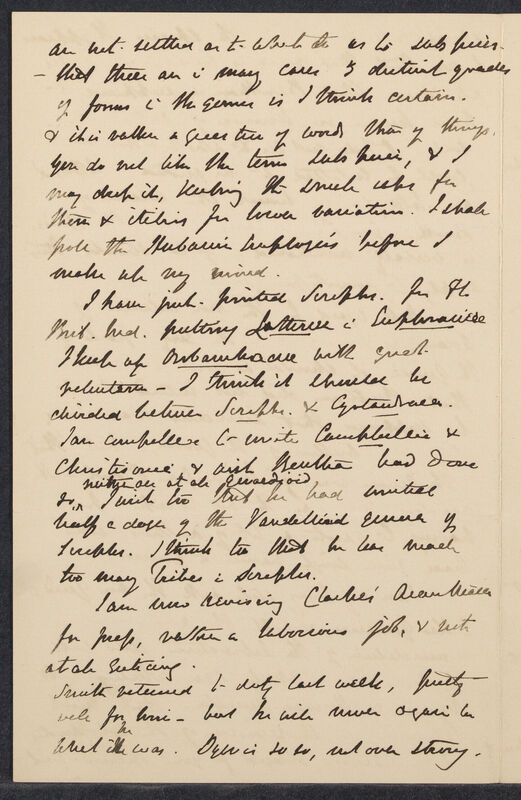 are not settled as to what to do as to subspecies
– that there are in many cases 3 distinct grades
of forms in the genus is I think certain.
& it is rather a question of words than of things.
You do not like the term subspecies, & I
may drop it, keeping the small caps for
them & italics for lower variation. I shall
probe the Rubi
before I
make up my mind.
I have just printed Scroph. for Fl.
Brit. Ind. putting Lathraea in Euphrasieae
I keep up Orobanchaceae with great
reluctance – I think it should be
divided between Scroph. & Cyrtandraceae.
I am compelled to unite Campbellia &
Christisonia, & wish Bentham had done
neither are at all gerardioid
so, I wish too that he had united
half a dozen of the Vandellioid genera of
Scroph. I think too that he has made
too many Tribes in Scroph.
I am now revising Clarke's Acanthaceae
for press, rather a laborious job, & not
at all enticing.
Smith returned to duty last week, pretty
well for him – but he will never again be
what he was. Dyer is so so, not over strong.